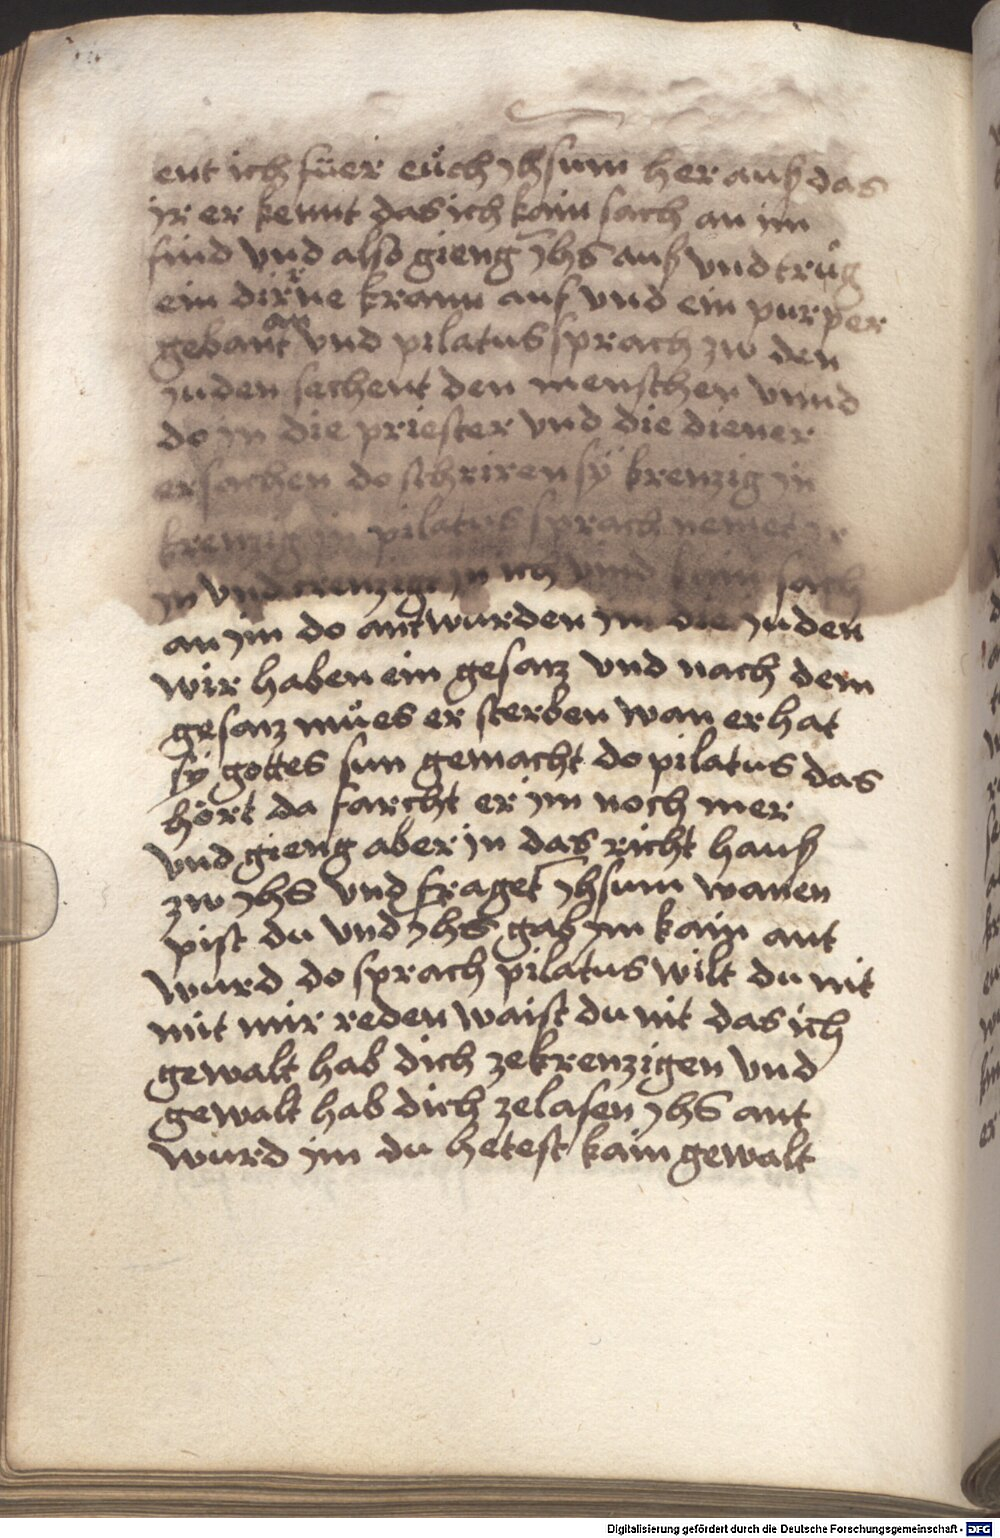 ent ich füer eüch yhsum her auß das
jr er kennt das ich kain sach an im
find vnd also gieng yhs auß vnd trůg
ein dirne krann auf vnd ein purper
gebant an vnd pilatus sprach zw den
juden sechent den menschen vnnd
do in die priester vnd die diener
ersachen do schriren sÿ krenzig in
krenzig in pilatus sprach nemet ir
in vnd crenzigt in ich vind kain sach
an im do antwurden im die juden
wir haben ein gesacz vnd nach dem
gesacz můes er sterben wan er hat
sÿ gottes sun gemacht do pilatus das
hört da farcht er im noch mer
vnd gieng aber in das richt hauß
zw yhs vnd fraget yhsum wanen
pist du vnd yhs gab im kain ant
wurd do sprach pilatus wilt du nit
mit mir reden waist du nit das ich
gewalt hab dich zekrenzigen vnd
gewalt hab dich zelasen yhs ant
wurd im du hetest kain gewalt
Digitalisierung gefördert durch die Deutsche Forschungsgemeinschaft - DFG